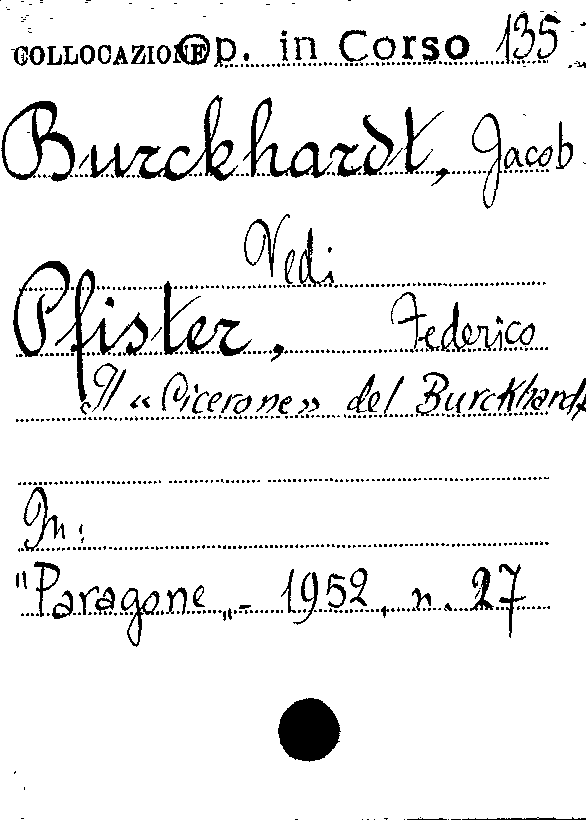 COLLOCAZIONE Op. in Corso 135
Burckhardt, Jacob
Vedi
Pfister, Federico
Il «Cicerone» del Burckhardt
In:
"Paragone„- 1952, n. 27